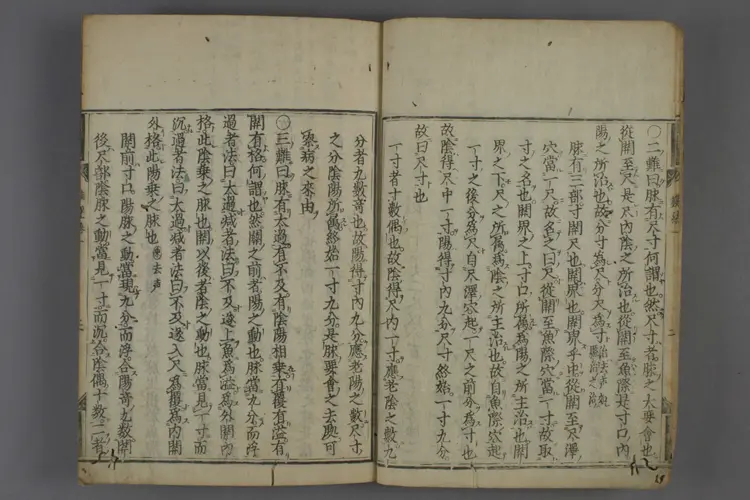 〇二難曰脉有尺寸何謂也然尺寸者脉之大要會也
從關至尺是尺內陰之所治也從關至魚際是寸口內
陽之所治也故分寸為尺分尺為寸
脉有三部寸關尺也關界也關界乎中從關至尺澤
穴當一尺故名之曰尺從關至魚際穴當一寸故取
寸之名也關界之上寸口所為陽之所主治也關
界之下尺之所為陰之所主治也故自魚際穴起
一寸之後分為尺自尺澤穴起一尺之前分為寸也
故陰得尺中一寸陽得寸內九分尺寸終始一寸九分
故曰尺寸也
一寸者十數偶也故陰得尺內一寸應老陰之數九
分者九數奇也故陽得寸內九分應老陽之數尺寸
之分陰陽所為終始一寸九分是脉要會之去處可
察病之來由
〇三難曰脉有太過有不及有陰陽相乘有覆有溢有
關有格何謂也然關之前者陽之動也脉當九分而浮
過者法曰太過減者法曰不及遂上魚為溢為外關內
格此陰乘之脉也關以後者陰之動也脉當見一寸而
沉過者法曰太過減者法曰不及遂入尺為覆為內關
外格此陽乘之脉也
關前寸口陽脉之動當現九分而浮合陽奇九數關
後尺部陰脉之動當見一寸而沉合陰偶十數一者